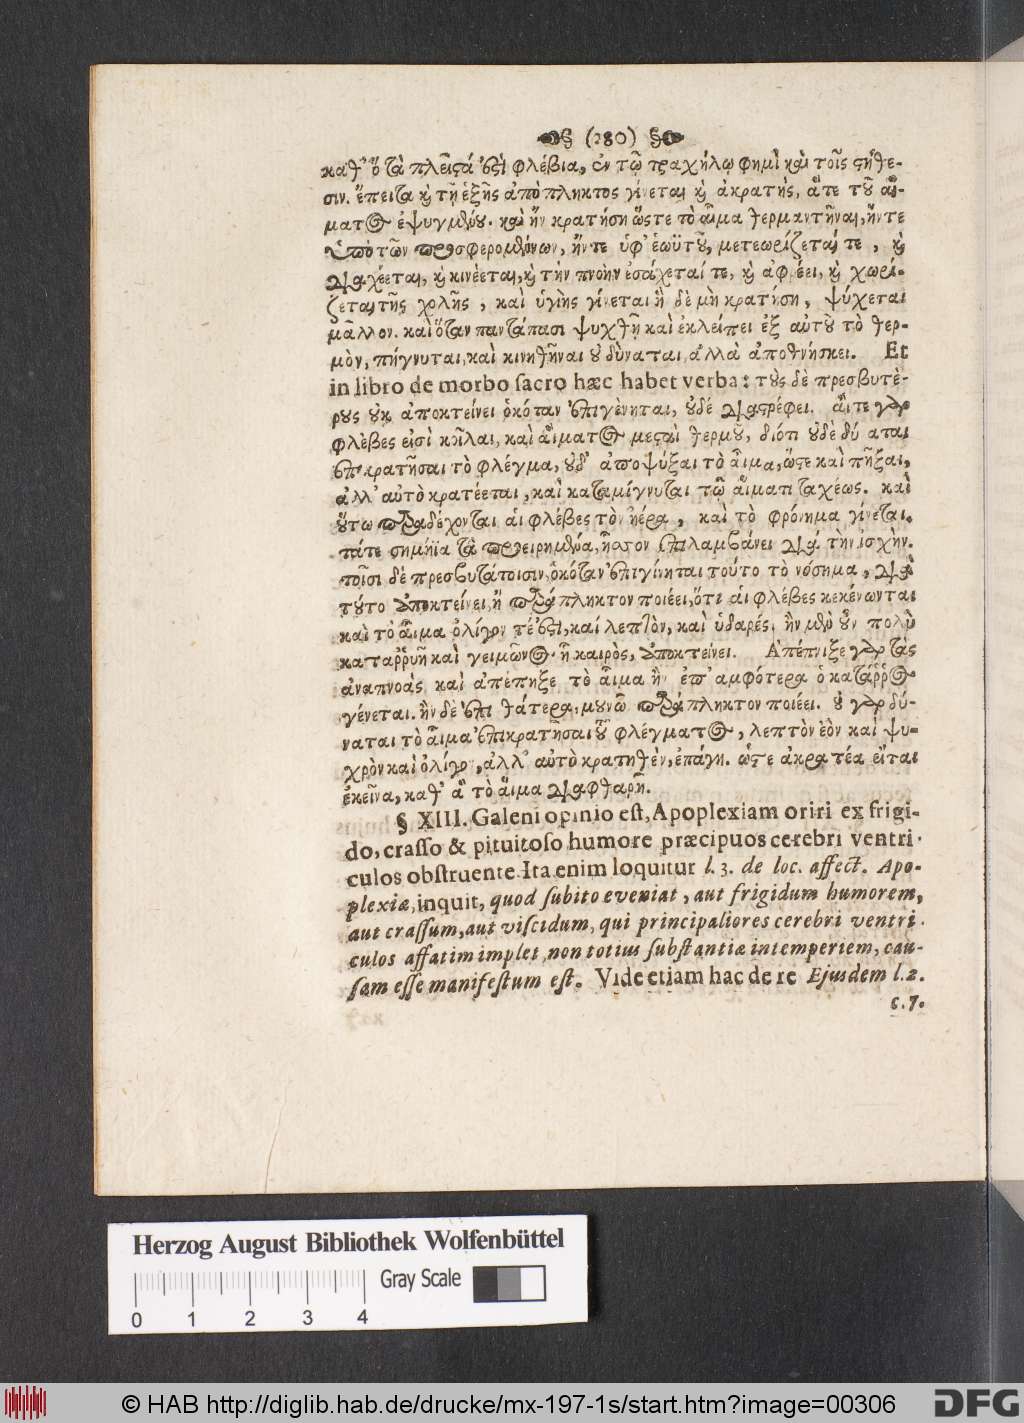 (280)
καθ᾽ ὅ τὰ πλεῖςά ἐςι φλέβια, ἐν τῶ τραχήλῳ φημὶ καὶ τοῖς ςήθε-
σιν. ἔπειτα καὶ τῇ ἑξῆς ἀπόπληκτος γίνεται καὶ ἀκρατής, ἅτε τοῦ αἵ-
ματος ἐψυγμένου. καὶ ἤν κρατήση ὥςτε τὸ αἷμα θερμαντῆναι, ἤντε
ὑπὸ τῶν προσφερομένων, ἤντε ὑφ᾽ ἑωϋτοῦ, μετεωρίζεταί τε, καὶ
διαχέεται, καὶ κινέεται, καὶ τὴν πνοὴν ἐσάχεταί τε, καὶ ἀφρέει, καὶ χωρί-
ζεται τῆς χολῆς, καὶ ὑγιὴς γίνεται ἢ δὲ μὴ κρατήση, ψύχεται
μᾶλλον. καὶ ὅταν παντάπασι ψυχθῇ καὶ ἐκλείπει ἐξ αὐτοῦ τὸ θερ-
μὸν, πήγνυται, καὶ κινηθῆναι οὐ δύναται, ἀλλὰ ἀποθνήσκει. Et
in libro de morbo sacro hæc habet verba: τοὺς δὲ πρεσβυτέ-
ρους οὐκ ἀποκτείνει ὁκόταν ἐπιγένηται, οὐδέ διαςρέφει. αἵτε γὰρ
φλέβες εἰσὶ κοῖλαι, καὶ αἵματος μεςαὶ θερμοῦ, διότι οὐδὲ δύ αται
ἐπικρατῆσαι τὸ φλέγμα, οὐδ᾽ ἀποψύξαι τὸ αἷμα, ὥςε καὶ πῆξαι,
ἀλλ᾽ αὐτὸ κρατέεται, καὶ καταμίγνυται τῷ αἵματι ταχέως. καὶ
οὕτω παραδέχονται αἱ φλέβες τὸν ἠέρα, καὶ τὸ φρόνημα γίνεται.
τάτε σημήϊα τὰ προειρημένα, ἧσσον ἐπιλαμβάνει διὰ τὴν ἰσχὴν.
τοῖσι δὲ πρεσβυτάτοισιν, ὁκόταν ἐπιγίνηται τούτο τὸ νόσημα, διὰ
τοῦτο ἀποκτείνει, ἢ παράπληκτον ποιέει, ὅτι αἱ φλέβες κεκένωνται
καὶ τὸ αἷμα ὀλίγον τέ ἐςι, καί λεπτὸν, καὶ ὑδαρές. ἢν μὲν οὖν πολὺ
καταῤῥυῆ καὶ χειμῶνος ἦ καιρὸς, ἀποκτείνει. Ἀπέπνιξε γὰρ τὰς
ἀναπνοὰς καὶ ἀπέπηξε τὸ αἷμα ἢν ἐπ᾽ ἀμφότερα ὁ κατάῤῥος
γένεται. ἢν δὲ ἐπὶ θάτερα, μουνῶ παράπληκτον ποιέει. οὐ γὰρ δύ-
ναται τὸ αἷμα ἐπικρατῆσαι τοῦ φλέγματος, λεπτὸν ἐὸν καὶ ψυ-
χρὸν καὶ ὀλίγον, ἀλλ᾽ αὐτὸ κρατηθὲν, ἐπάγη. ὥςτε ἀκρατέα εἴται
ἐκεῖνα, καθ᾽ ἃ τὸ αἷμα διαφθαρῆ.
§ XIII. Galeni opinio est, Apoplexiam oriri ex frigi-
do, crasso & pituitoso humore præcipuos cerebri ventri-
culos obstruente. Ita enim loquitur l. 3. de loc. affect. Apo-
plexiæ, inquit, quod subito eveniat, aut frigidum humorem,
aut crassum, aut viscidum, qui principaliores cerebri ventri-
culos affatim implet, non totius substantiæ intemperiem, cau-
sam esse manifestum est. Vide etiam hac de re Ejusdem l. 2.
c. 7.
Herzog August Bibliothek Wolfenbüttel
Gray Scale
0 1 2 3 4
© HAB http://diglib.hab.de/drucke/mx-197-1s/start.htm?image=00306
DFG